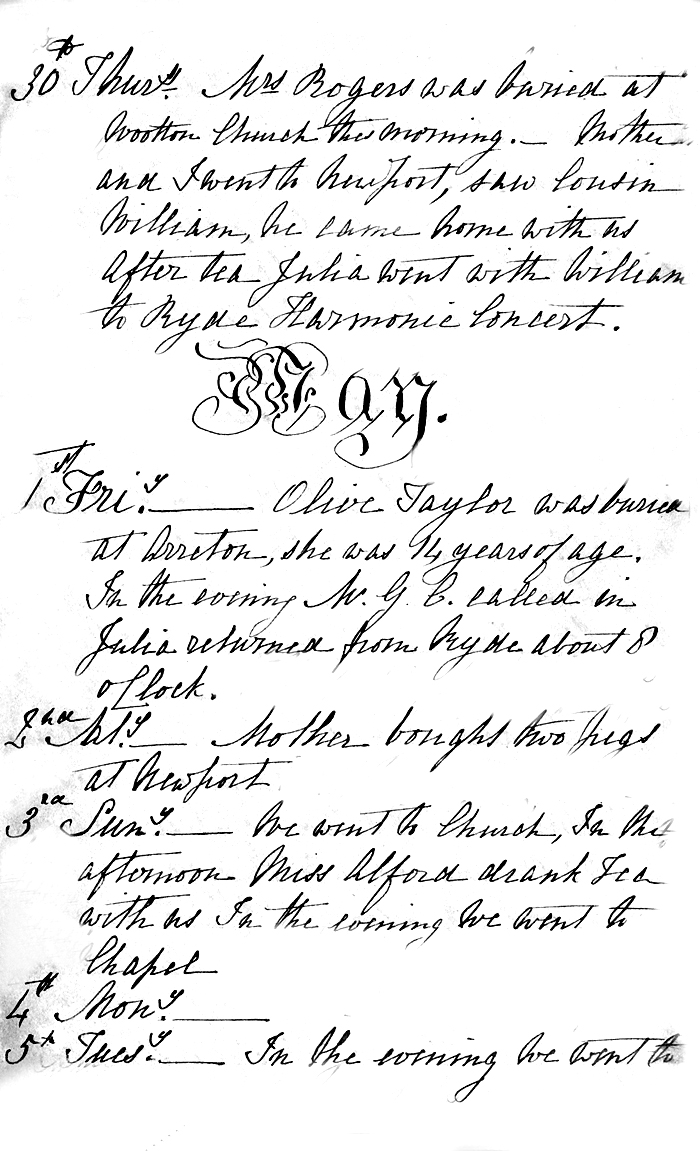 30th Thursy. Mrs Rogers was buried at
Wootton Church this morning. — Mother
and I went to Newport, saw Cousin
William, he came home with us
After tea Julia went with William
to Ryde Harmonic Concert.
May.
1st Friy. — Olive Taylor was buried
at Arreton, she was 14 years of age.
In the evening Mr. G. C. called in
Julia returned from Ryde about 8
oClock.
2nd Saty. — Mother bought two pegs
at Newport
3rd Suny. — We went to Church, In the
afternoon Miss Alford drank Tea
with us In the evening We went to
Chapel
4th Mony. —
5th Tuesy. — In the evening We went to